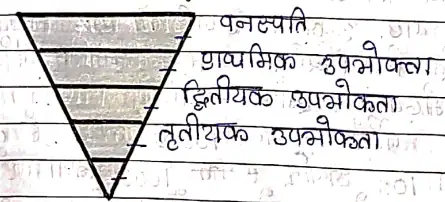 वनस्पति
प्राथमिक उपभोक्ता
द्वितीयक उपभोक्ता
तृतीयक उपभोक्ता